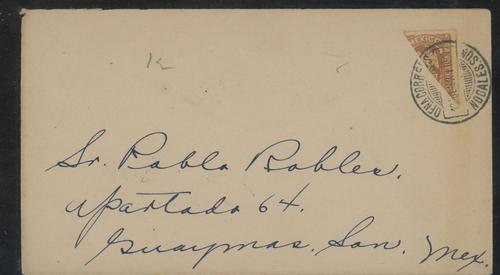 12
MEXICO
OFNA CORREOS
NOGALES SON
Sr. Pablo Robles.
Apartado 64.
Guaymas, Son. Mex.